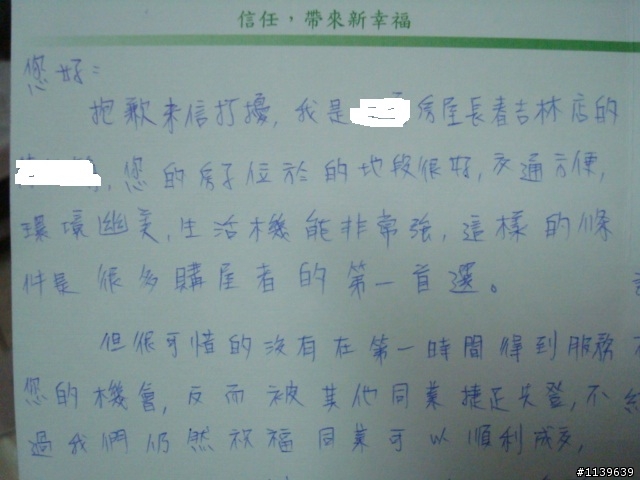 信任，帶來新幸福
您好：
抱歉來信打擾，我是 房屋長春吉林店的
，您的房子位於的地段很好，交通方便，
環境幽美，生活機能非常強，這樣的條
件是很多購屋者的第一首選。
但很可惜的沒有在第一時間得到服務
您的機會，反而被其他同業捷足先登，不
過我們仍然祝福同業可以順利成交，
#1139639